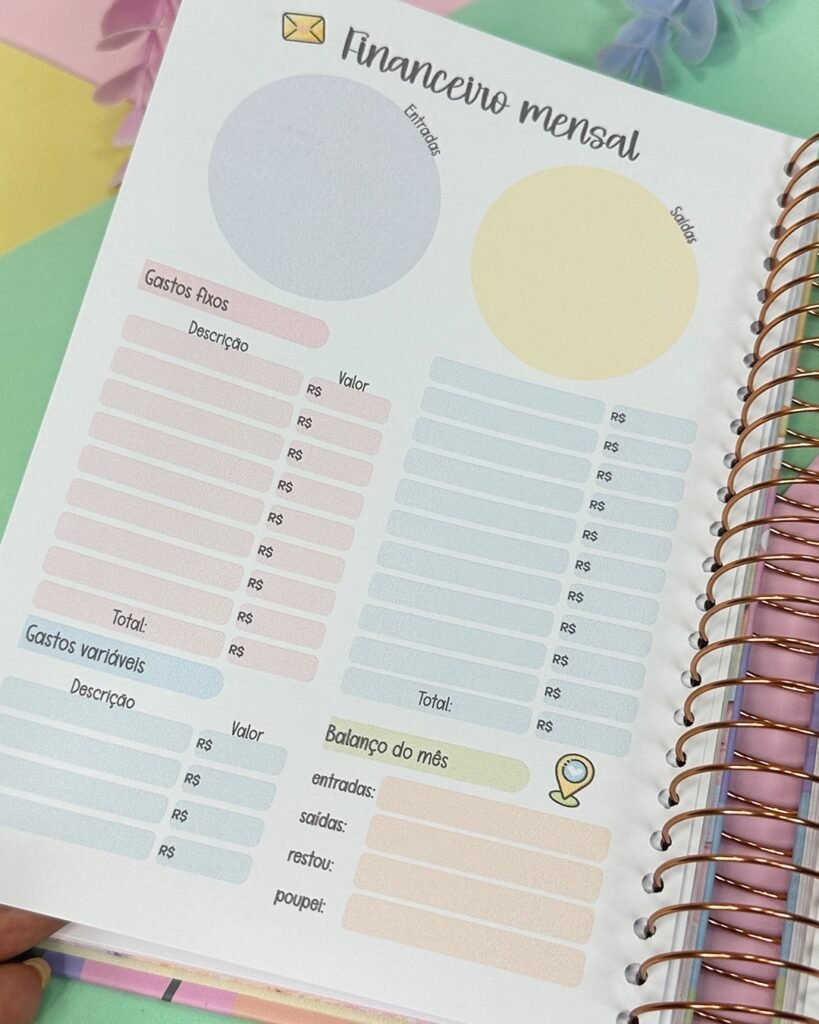 Financeiro mensal
Entradas
Saídas
Gastos fixos
Descrição Valor
R$
R$
R$
R$
R$
R$
R$
R$
Total: R$
Gastos variáveis
Descrição Valor
R$
R$
R$
R$
R$
R$
R$
R$
R$
R$
R$
R$
R$
R$
Total: R$
Balanço do mês
entradas:
saídas:
restou:
poupei: